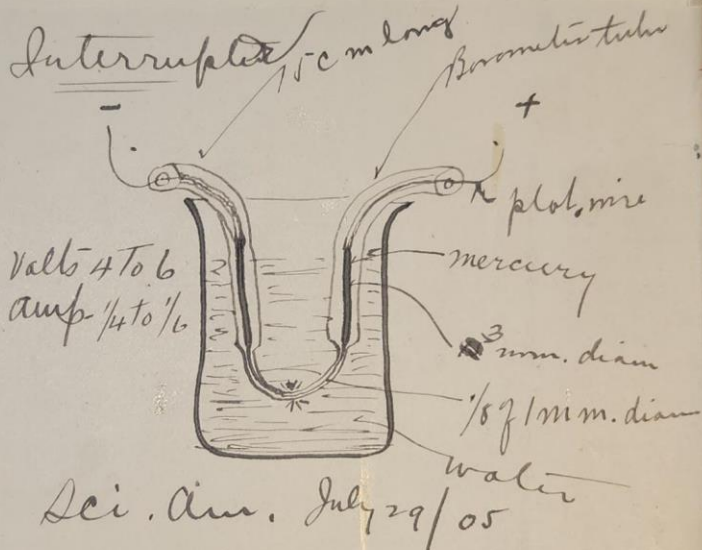 Interrupter
15 cm long
Barometer tube
-
+
plat. wire
Volts 4 to 6
amp 1/4 to 1/6
mercury
3 mm. diam
1/8 of 1 mm. diam
water
Sci. Am. July 29/05